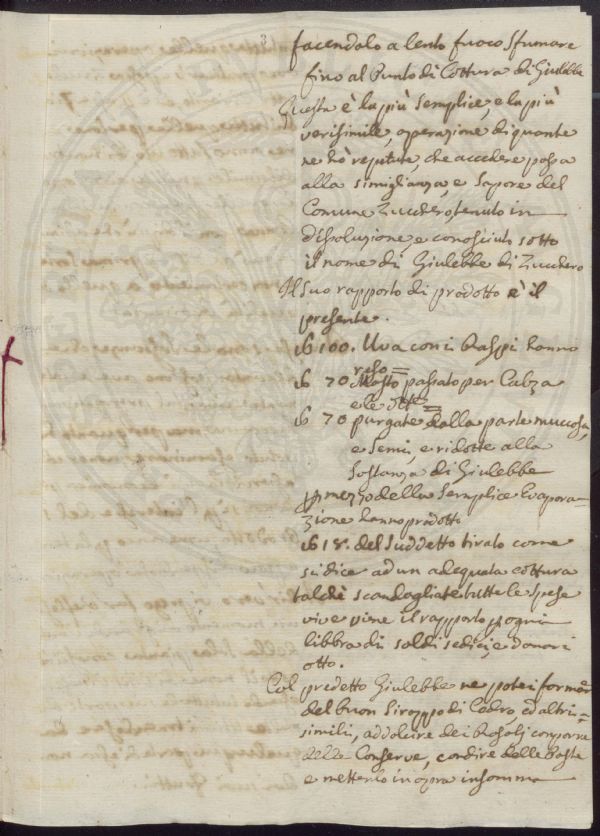 3
facendolo a lento fuoco sfumare
fino al Punto di Cottura di Giulebbe
Questa è la più semplice, e la più
verisimile, operazione di quante
ne hò repetute, che accedere possa
alla simiglianza, e Sapore del
Comune Zucchero tenuto in
dissoluzione e conosciuto sotto
il nome di Giulebbe di Zucchero
Il suo rapporto di prodotto è il
presente.
℔ 100. Uva con i Raspi hanno
reso=
℔ 70 Mosto passato per Calza
e le dte=
℔ 70 purgate dalla parte mucosa,
e Semi, e ridotte alla
Sostanza di Giulebbe
p mezzo della Semplice Evapora=
zione hanno prodotto
℔ 18. del Suddetto tirato come
si dice ad un adequata cottura
talchè scandagliate tutte le spese
vive viene il rapporto p ogni
libbra di soldi sedici, e denari
otto.
Col predetto Giulebbe ne potei formar
del buon Siroppo di Cedro, ed altri=
simili, addolcire dei Rosolj comporre
delle Conserve, condire delle Paste
e metterlo in opra insomma